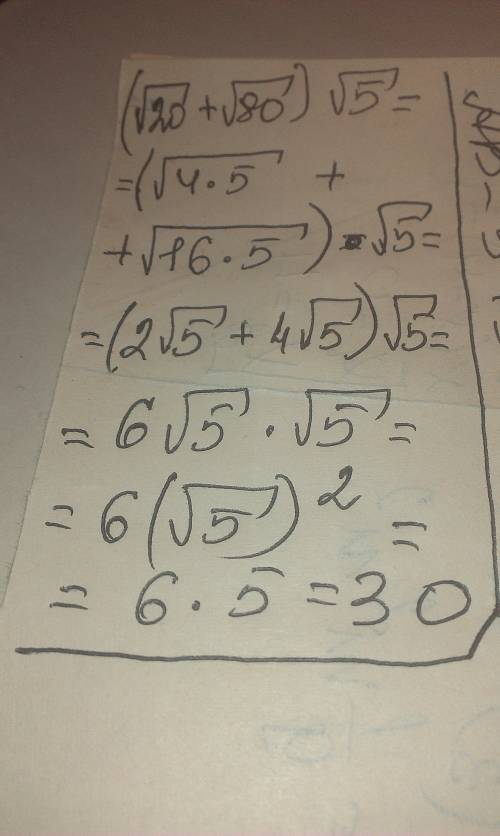 (√20 + √80) √5 =
= (√4·5 +
+ √16·5) · √5 =
= (2√5 + 4√5) √5 =
= 6√5 · √5 =
= 6(√5)² =
= 6·5 = 30